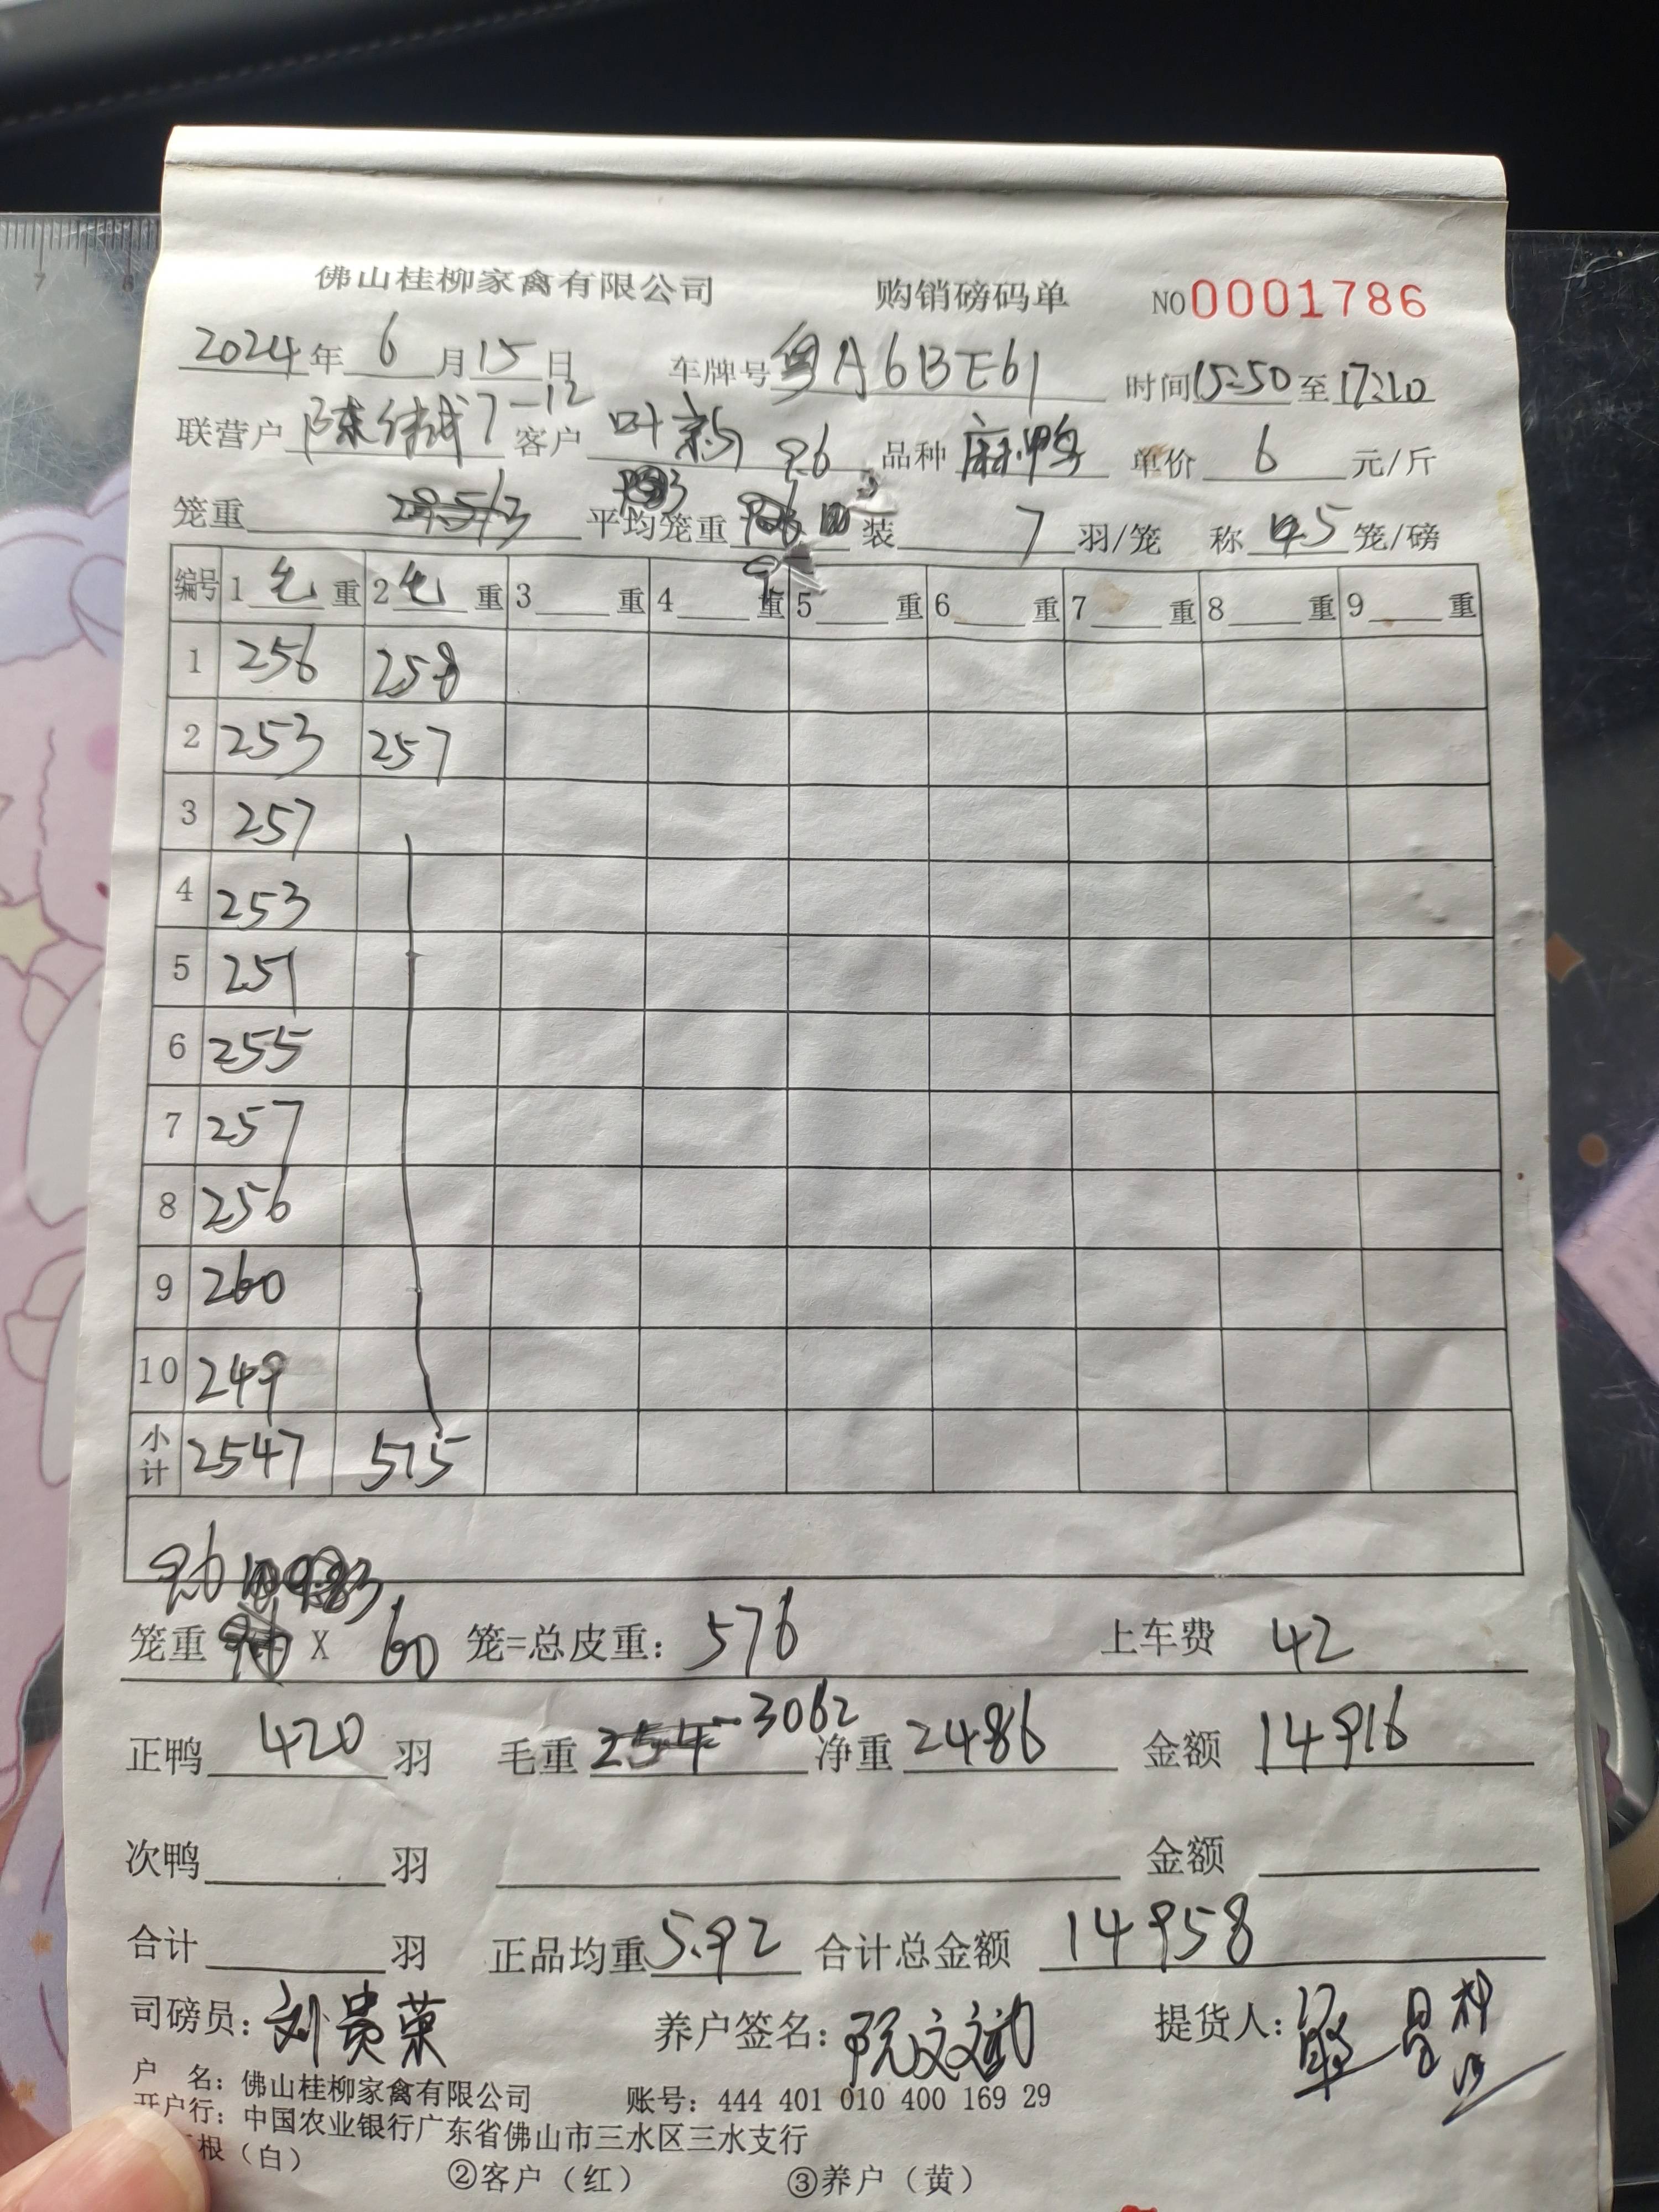 佛山桂柳家禽有限公司 购销磅码单 NO 0001786
2024年 6月15日 车牌号 粤A6BE61 时间15:50至17:20
联营户 陈伟城7-12 客户 叶 9.6 品种 麻鸭 单价 6 元/斤
笼重 平均笼重 装 7 羽/笼 称 5 笼/磅
编号 1 毛 重 2 毛 重 3 重 4 重 5 重 6 重 7 重 8 重 9 重
1 256 258
2 253 257
3 257
4 253
5 251
6 255
7 257
8 256
9 260
10 249
小计 2547 515
9.6
笼重 X 60 笼=总皮重: 576 上车费 42
正鸭 420 羽 毛重 3062 净重 2486 金额 14916
次鸭 羽 金额
合计 羽 正品均重 5.92 合计总金额 14958
司磅员: 刘贵荣 养户签名: 阮文斌 提货人:
户 名: 佛山桂柳家禽有限公司 账号: 444 401 010 400 169 29
开户行: 中国农业银行广东省佛山市三水区三水支行
根（白） ②客户（红） ③养户（黄）